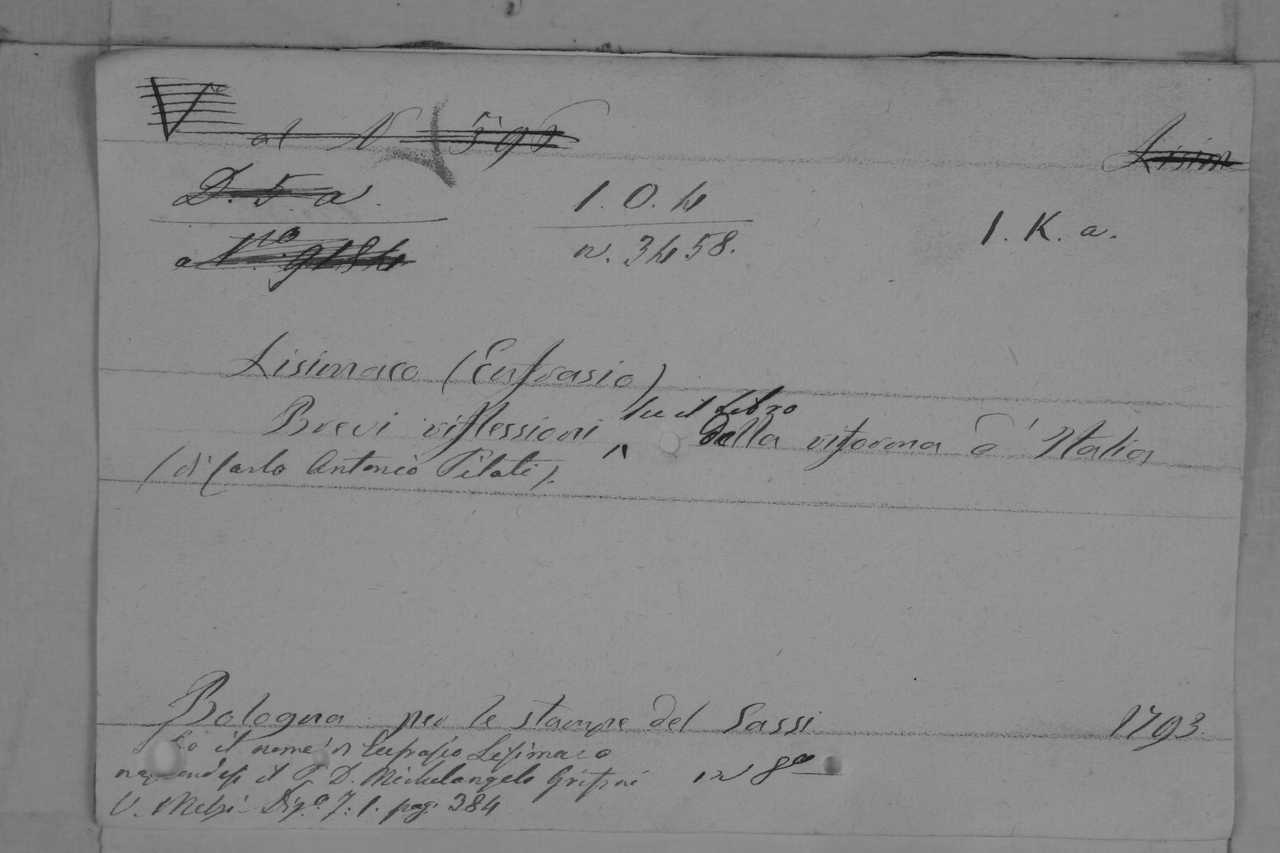 V
al N 595
Lisim
D. 5. a.
1. O. 4
1. K. a.
a N.ro 9184
n. 3458.
Lisimaco (Eufrasio)
su il Libro
Brevi riflessioni ^ della riforma d'Italia
(di Carlo Antonio Pilati).
Bologna per le stampe del Sassi 1793.
il nome di Eufrasio Lisimaco
il P. D. Michelangelo Griffini in 8º
V. Melzi Diz.º T. 1. pag. 384